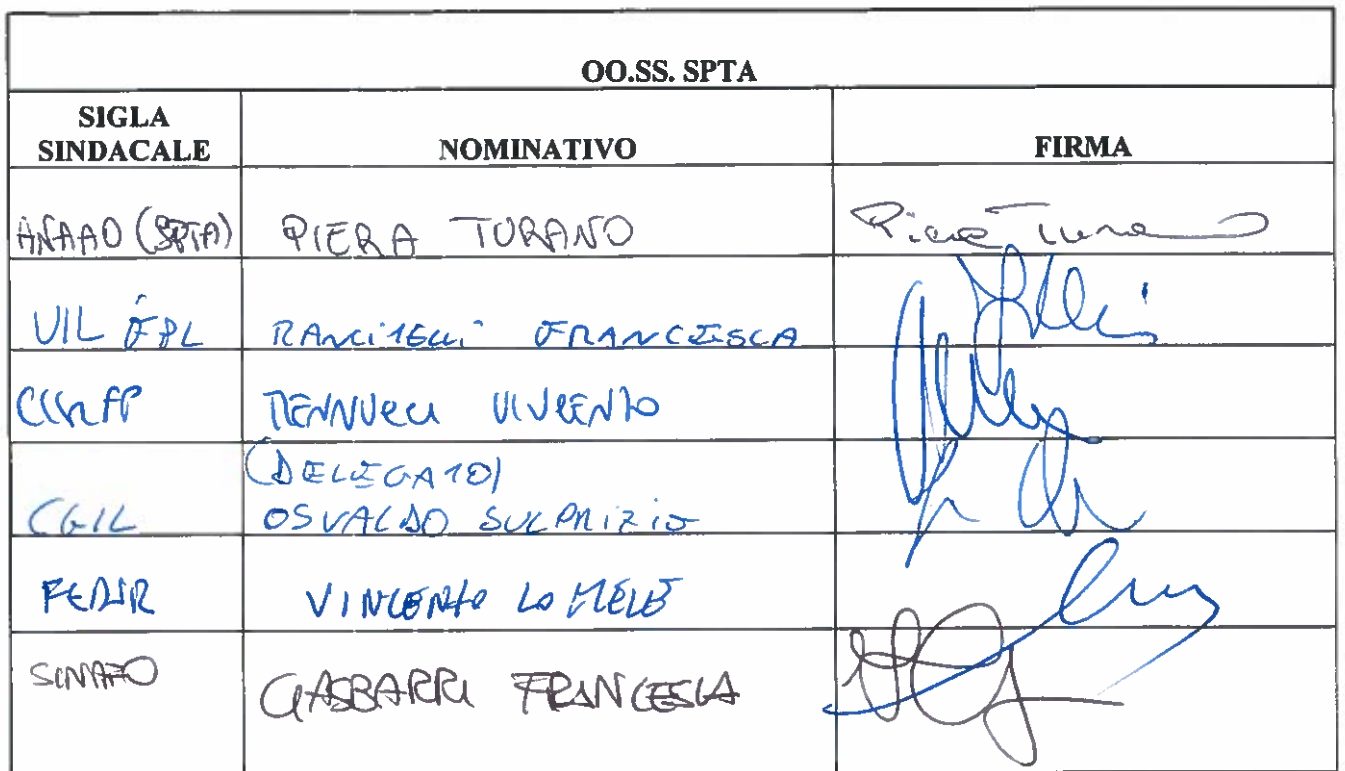 OO.SS. SPTA
SIGLA
SINDACALE
NOMINATIVO
FIRMA
ANAAO (SPTA) PIERA TURANO Piera Turano
UIL FPL RANCITELLI FRANCESCA
CISL FP VINCENZO
(DELEGATO)
CGIL OSVALDO SULPRIZIO
FEDIR VINCENZO LO MELE
SINAFO GASBARRI FRANCESCA